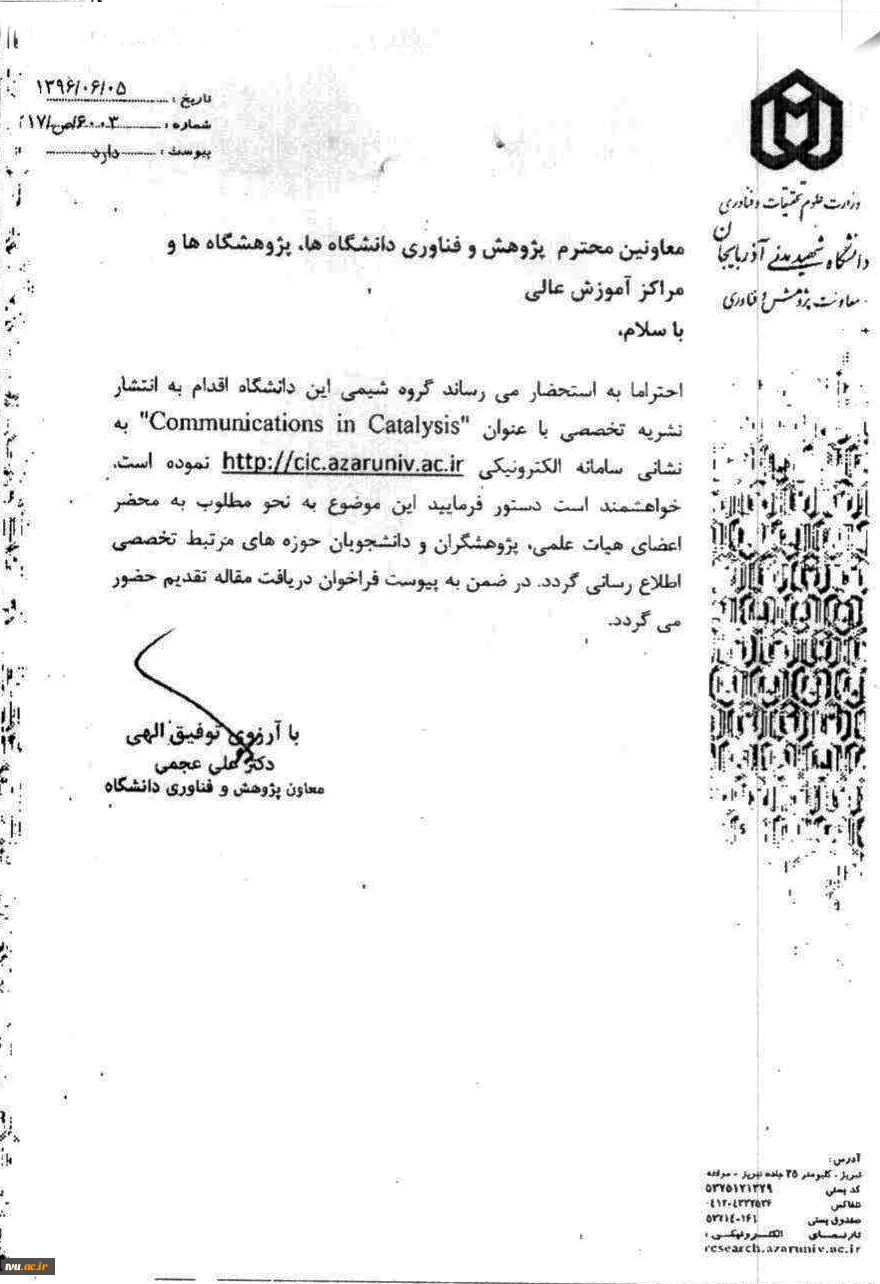 تاریخ : ۱۳۹۶/۰۶/۰۵
شماره : ۱۷/ص/۶۰۰۳
پیوست : دارد
وزارت علوم تحقیقات و فناوری
دانشگاه شهید مدنی آذربایجان
معاونت پژوهش و فناوری
معاونین محترم پژوهش و فناوری دانشگاه ها، پژوهشگاه ها و
مراکز آموزش عالی
با سلام،
احتراما به استحضار می رساند گروه شیمی این دانشگاه اقدام به انتشار
نشریه تخصصی با عنوان "Communications in Catalysis" به
نشانی سامانه الکترونیکی http://cic.azaruniv.ac.ir نموده است.
خواهشمند است دستور فرمایید این موضوع به نحو مطلوب به محضر
اعضای هیات علمی، پژوهشگران و دانشجویان حوزه های مرتبط تخصصی
اطلاع رسانی گردد. در ضمن به پیوست فراخوان دریافت مقاله تقدیم حضور
می گردد.
با آرزوی توفیق الهی
دکتر علی عجمی
معاون پژوهش و فناوری دانشگاه
آدرس:
تبریز - کیلومتر ۳۵ جاده تبریز - مراغه
کد پستی ۵۳۷۵۱۷۱۳۷۹
تلفاکس
صندوق پستی ۵۳۷۱٤-۱۶۱
تارنمای الکترونیکی :
research.azaruniv.ac.ir
tvu.ac.ir